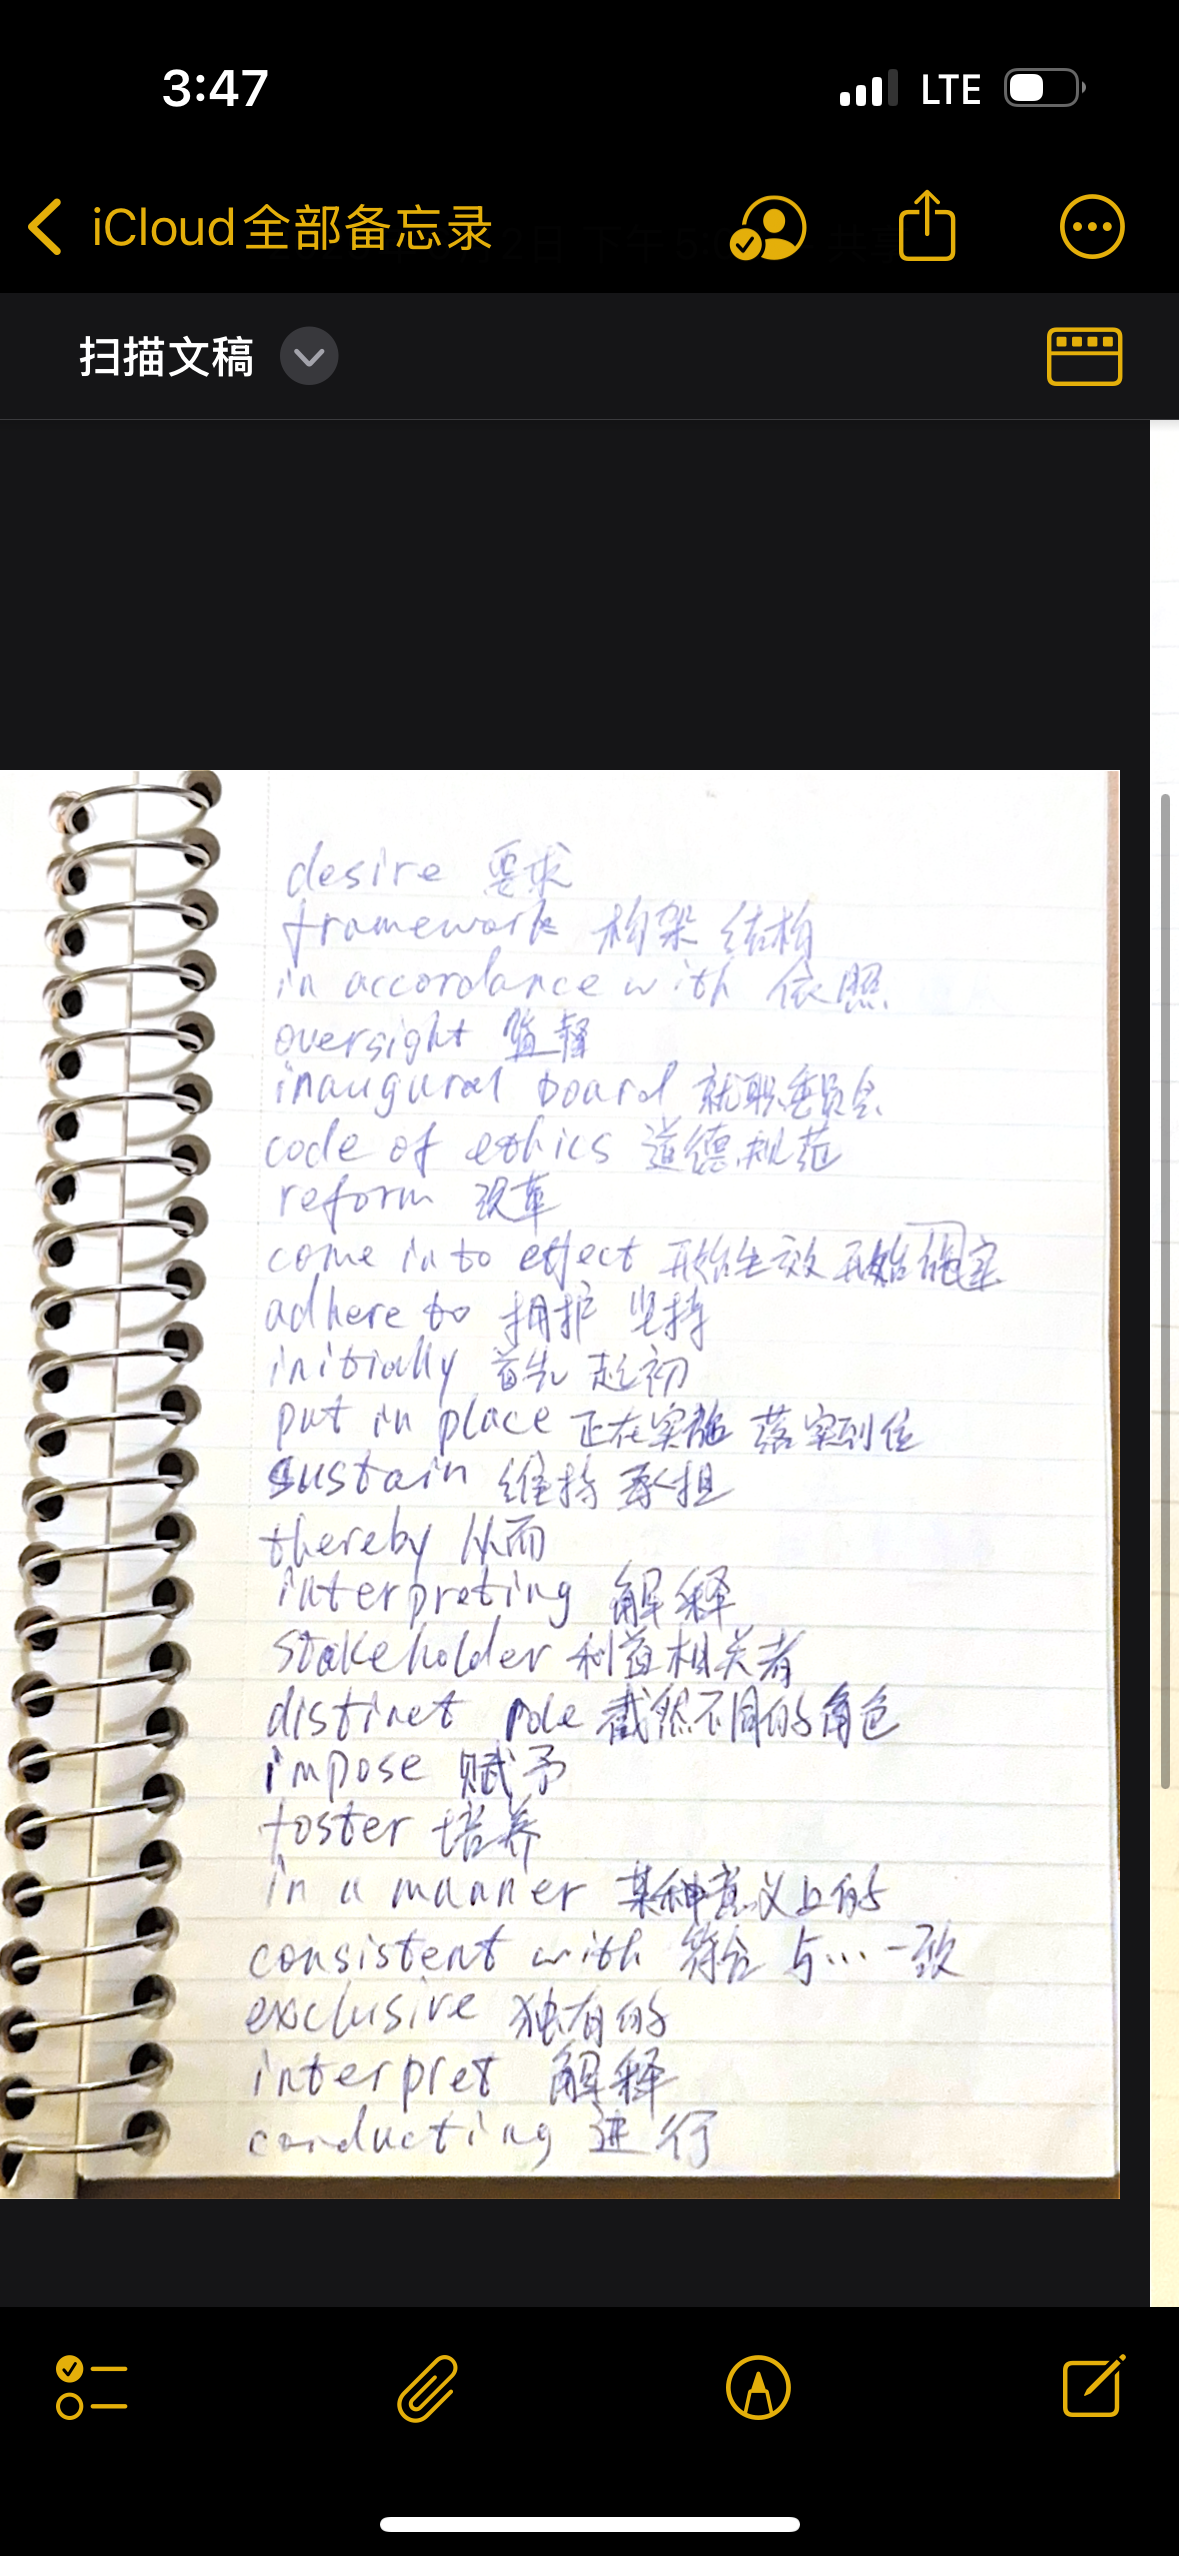 3:47 LTE
iCloud全部备忘录
扫描文稿
desire 要求
framework 构架 结构
in accordance with 依照
oversight 监督
inaugural board 就职委员会
code of ethics 道德规范
reform 改革
come into effect 开始生效 开始
adhere to 拥护 坚持
initially 首先 起初
put in place 正在实施 落实到位
sustain 维持 承担
thereby 从而
interpreting 解释
stakeholder 利益相关者
distinct role 截然不同的角色
impose 赋予
foster 培养
in a manner 某种意义上的
consistent with 符合 与…一致
exclusive 独有的
interpret 解释
conducting 进行